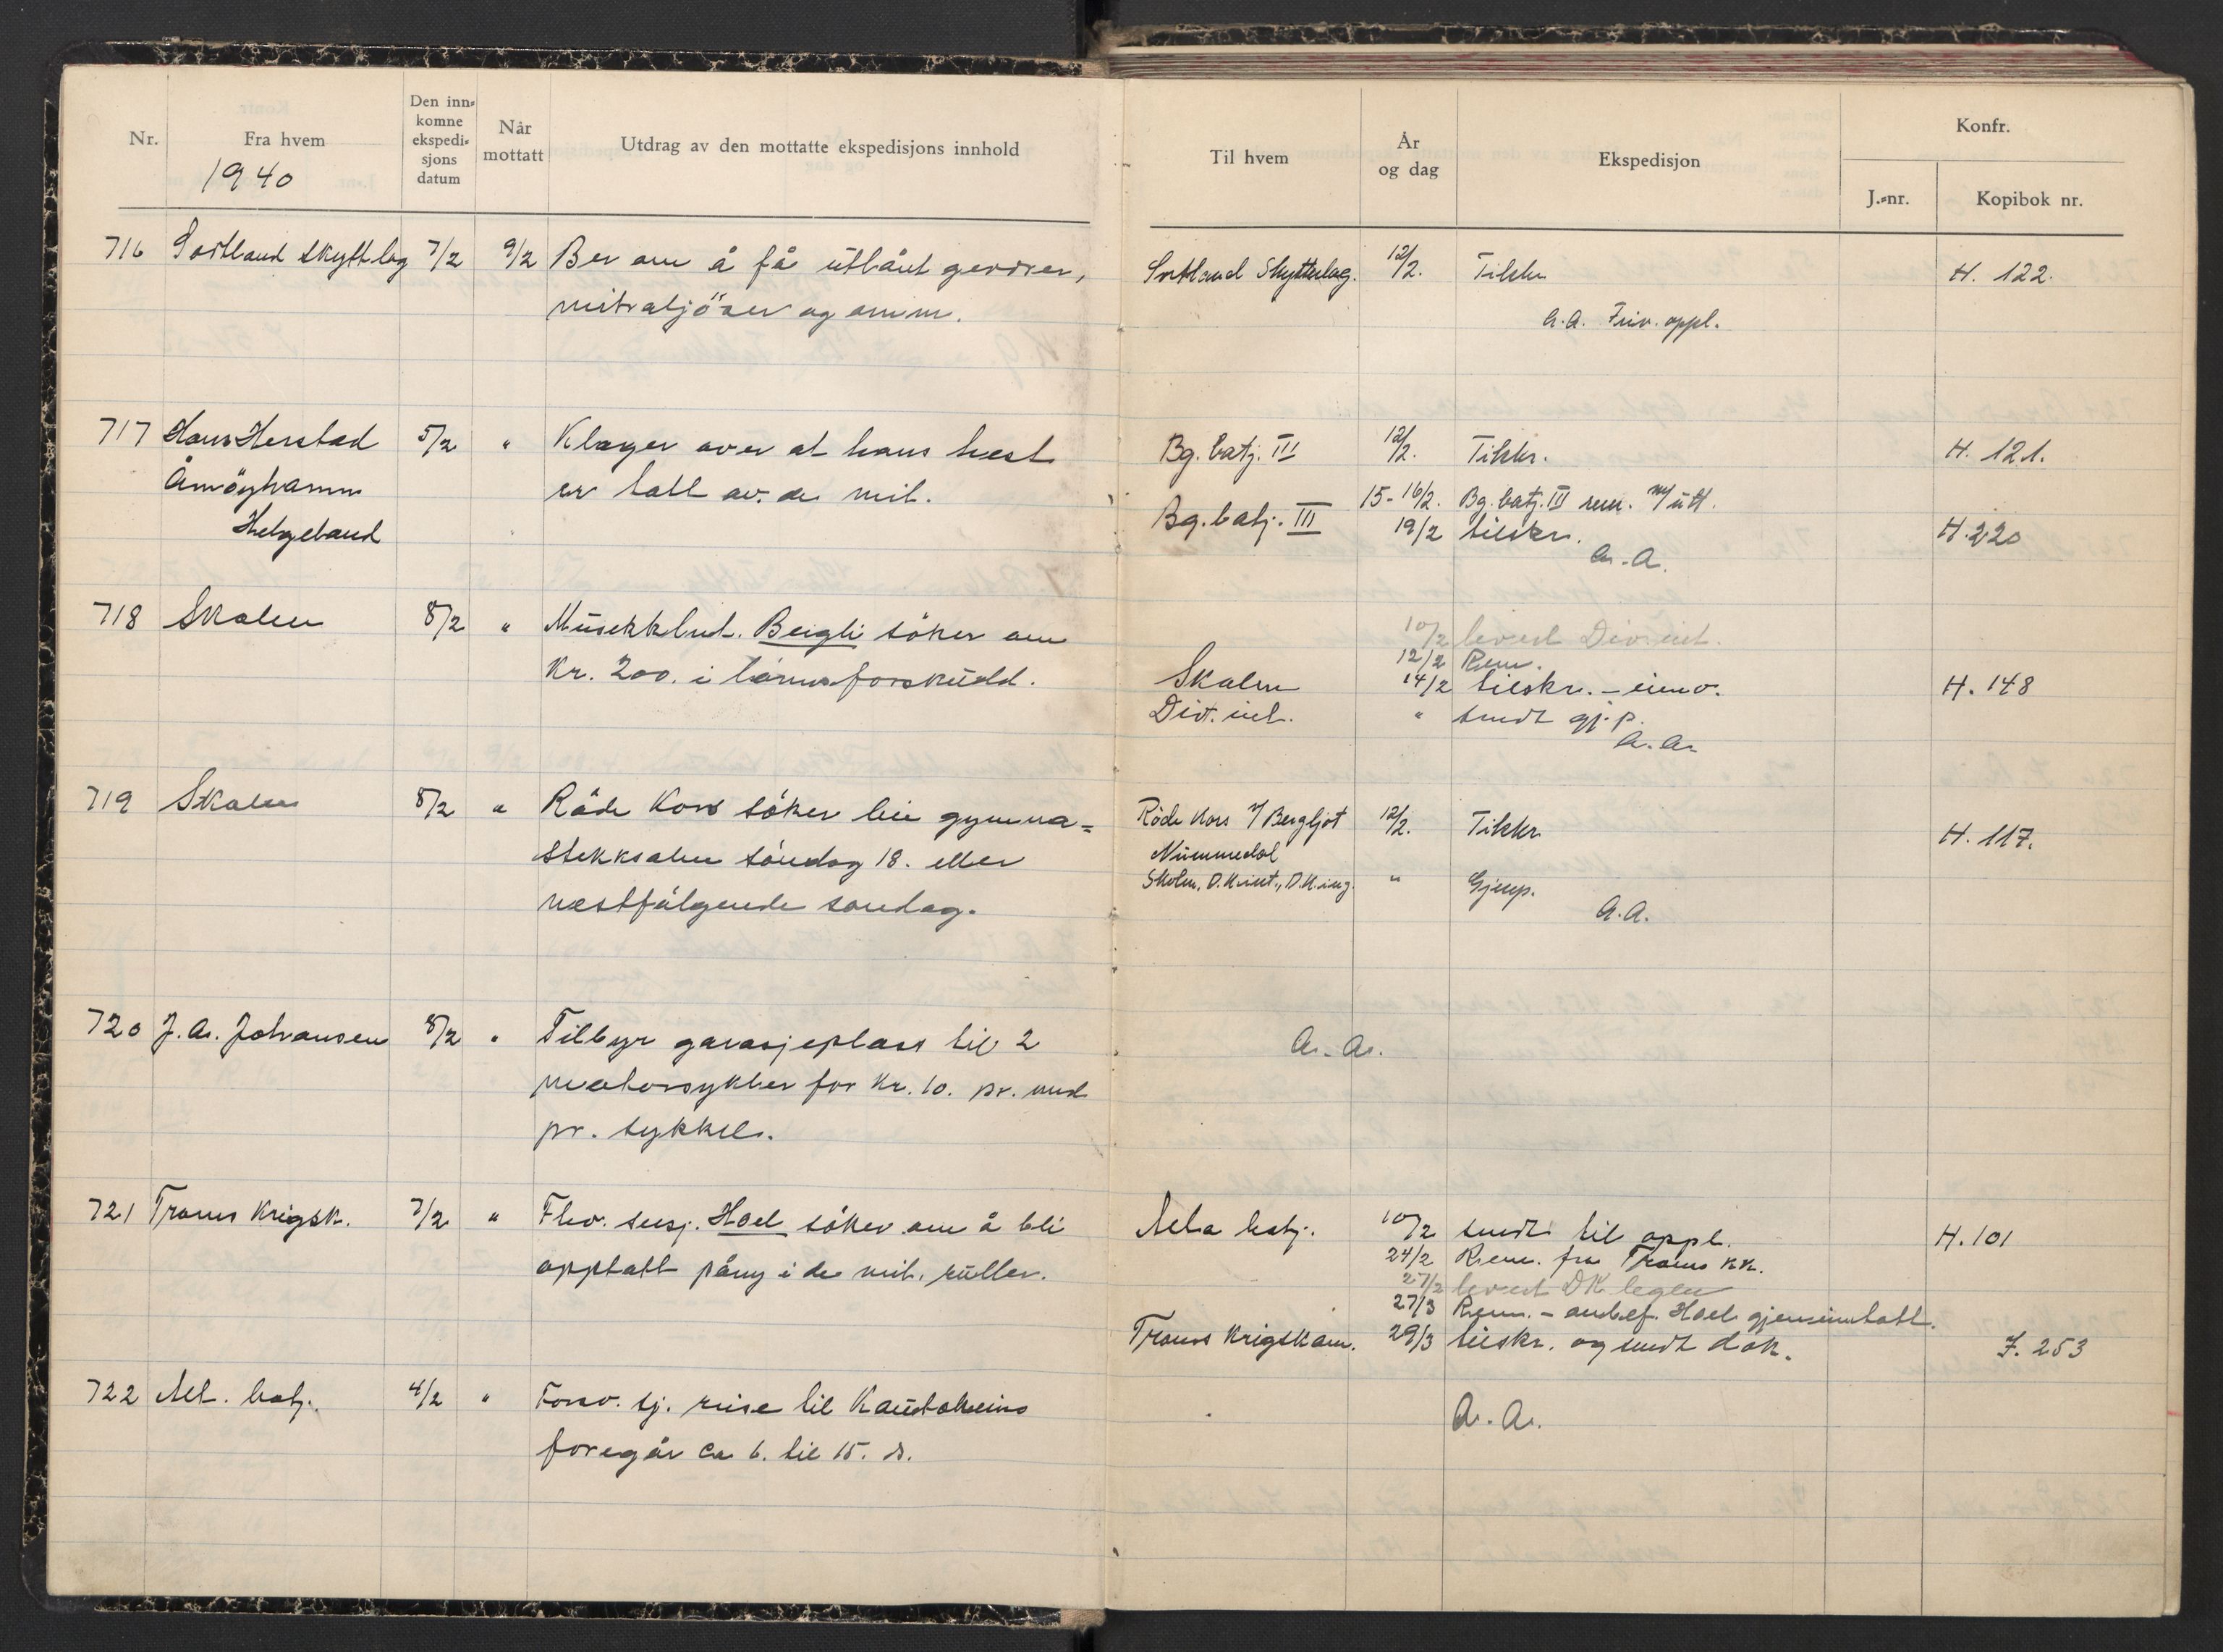 Nr.
Fra hvem
1940
Den inn-
komne
ekspedi-
sjons
datum
Når
mottatt
Utdrag av den mottatte ekspedisjons innhold
716 Sortland Skyttlag 7/2 9/2 Ber om å få utlånt geværer,
mitraljöser og amm.
717 Hans Herstad 5/2 " Klager over at hans hest
Åmöyhamn er tatt av de mil.
Helgeland
718 Skolen 8/2 " Musekklnt. Beigli söker om
Kr. 200. i lönnsforskudd.
719 Skolen 8/2 " Röde Kors söker leie gymna=
stikksalen söndag 18. eller
nestfölgende söndag.
720 J. A. Johansen 8/2 " Tilbyr garasjeplass til 2
motorsykler for Kr. 10. pr. mnd
pr. sykkel.
721 Troms Krigsk. 7/2 " Flev. sersj. Hoel söker om å bli
opptatt påny i de mil. ruller.
722 Alt. batj. 4/2 " Forsv. sj. reise til Kautokeino
foregår ca 6. til 15. ds.
Til hvem
År
og dag
Ekspedisjon
Konfr.
J.-nr.
Kopibok nr.
Sortland Skytterlag. 12/2. Tilskr. H. 122.
a.a. Friv. oppl.
Bg. batj. III 12/2. Tilskr. H. 121.
15-16/2. Bg. batj. III rem. m/ utt.
Bg. batj. III 19/2 tilskr. H. 220
a.a.
10/2 levert Div. int.
12/2 Rem.
Skolen 14/2 tilskr. - innv. H. 148
Div. int. " sendt gj.p.
a.a.
Röde Kors v/ Bergljot 12/2. Tilskr. H. 117.
Nummedal
Skolen, D.K.int., D.K.ing. " Gjenp.
a.a.
a.a.
Alta batj. 10/2 sendt til oppl. H. 101
24/2 Rem. fra Troms KK.
27/2 levert DK legen
27/3 Rem. - anbef. Hoel gjeninntatt.
Troms Krigskom. 29/3 tilskr. og sendt dok. J. 253
a.a.